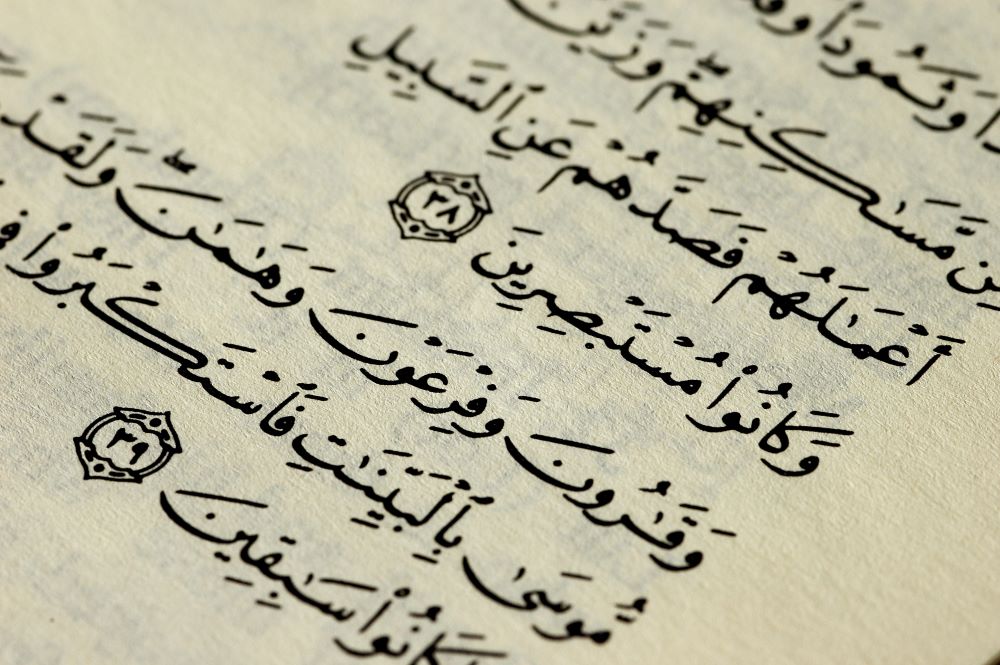 وَثَمُودَا۟
مِّن مَّسَٰكِنِهِمْ ۖ وَزَيَّنَ
أَعْمَٰلَهُمْ فَصَدَّهُمْ عَنِ ٱلسَّبِيلِ
وَكَانُوا۟ مُسْتَبْصِرِينَ ٣٨
وَقَٰرُونَ وَفِرْعَوْنَ وَهَٰمَٰنَ ۖ وَلَقَدْ
مُّوسَىٰ بِٱلْبَيِّنَٰتِ فَٱسْتَكْبَرُوا۟
كَانُوا۟ سَٰبِقِينَ ٣٩